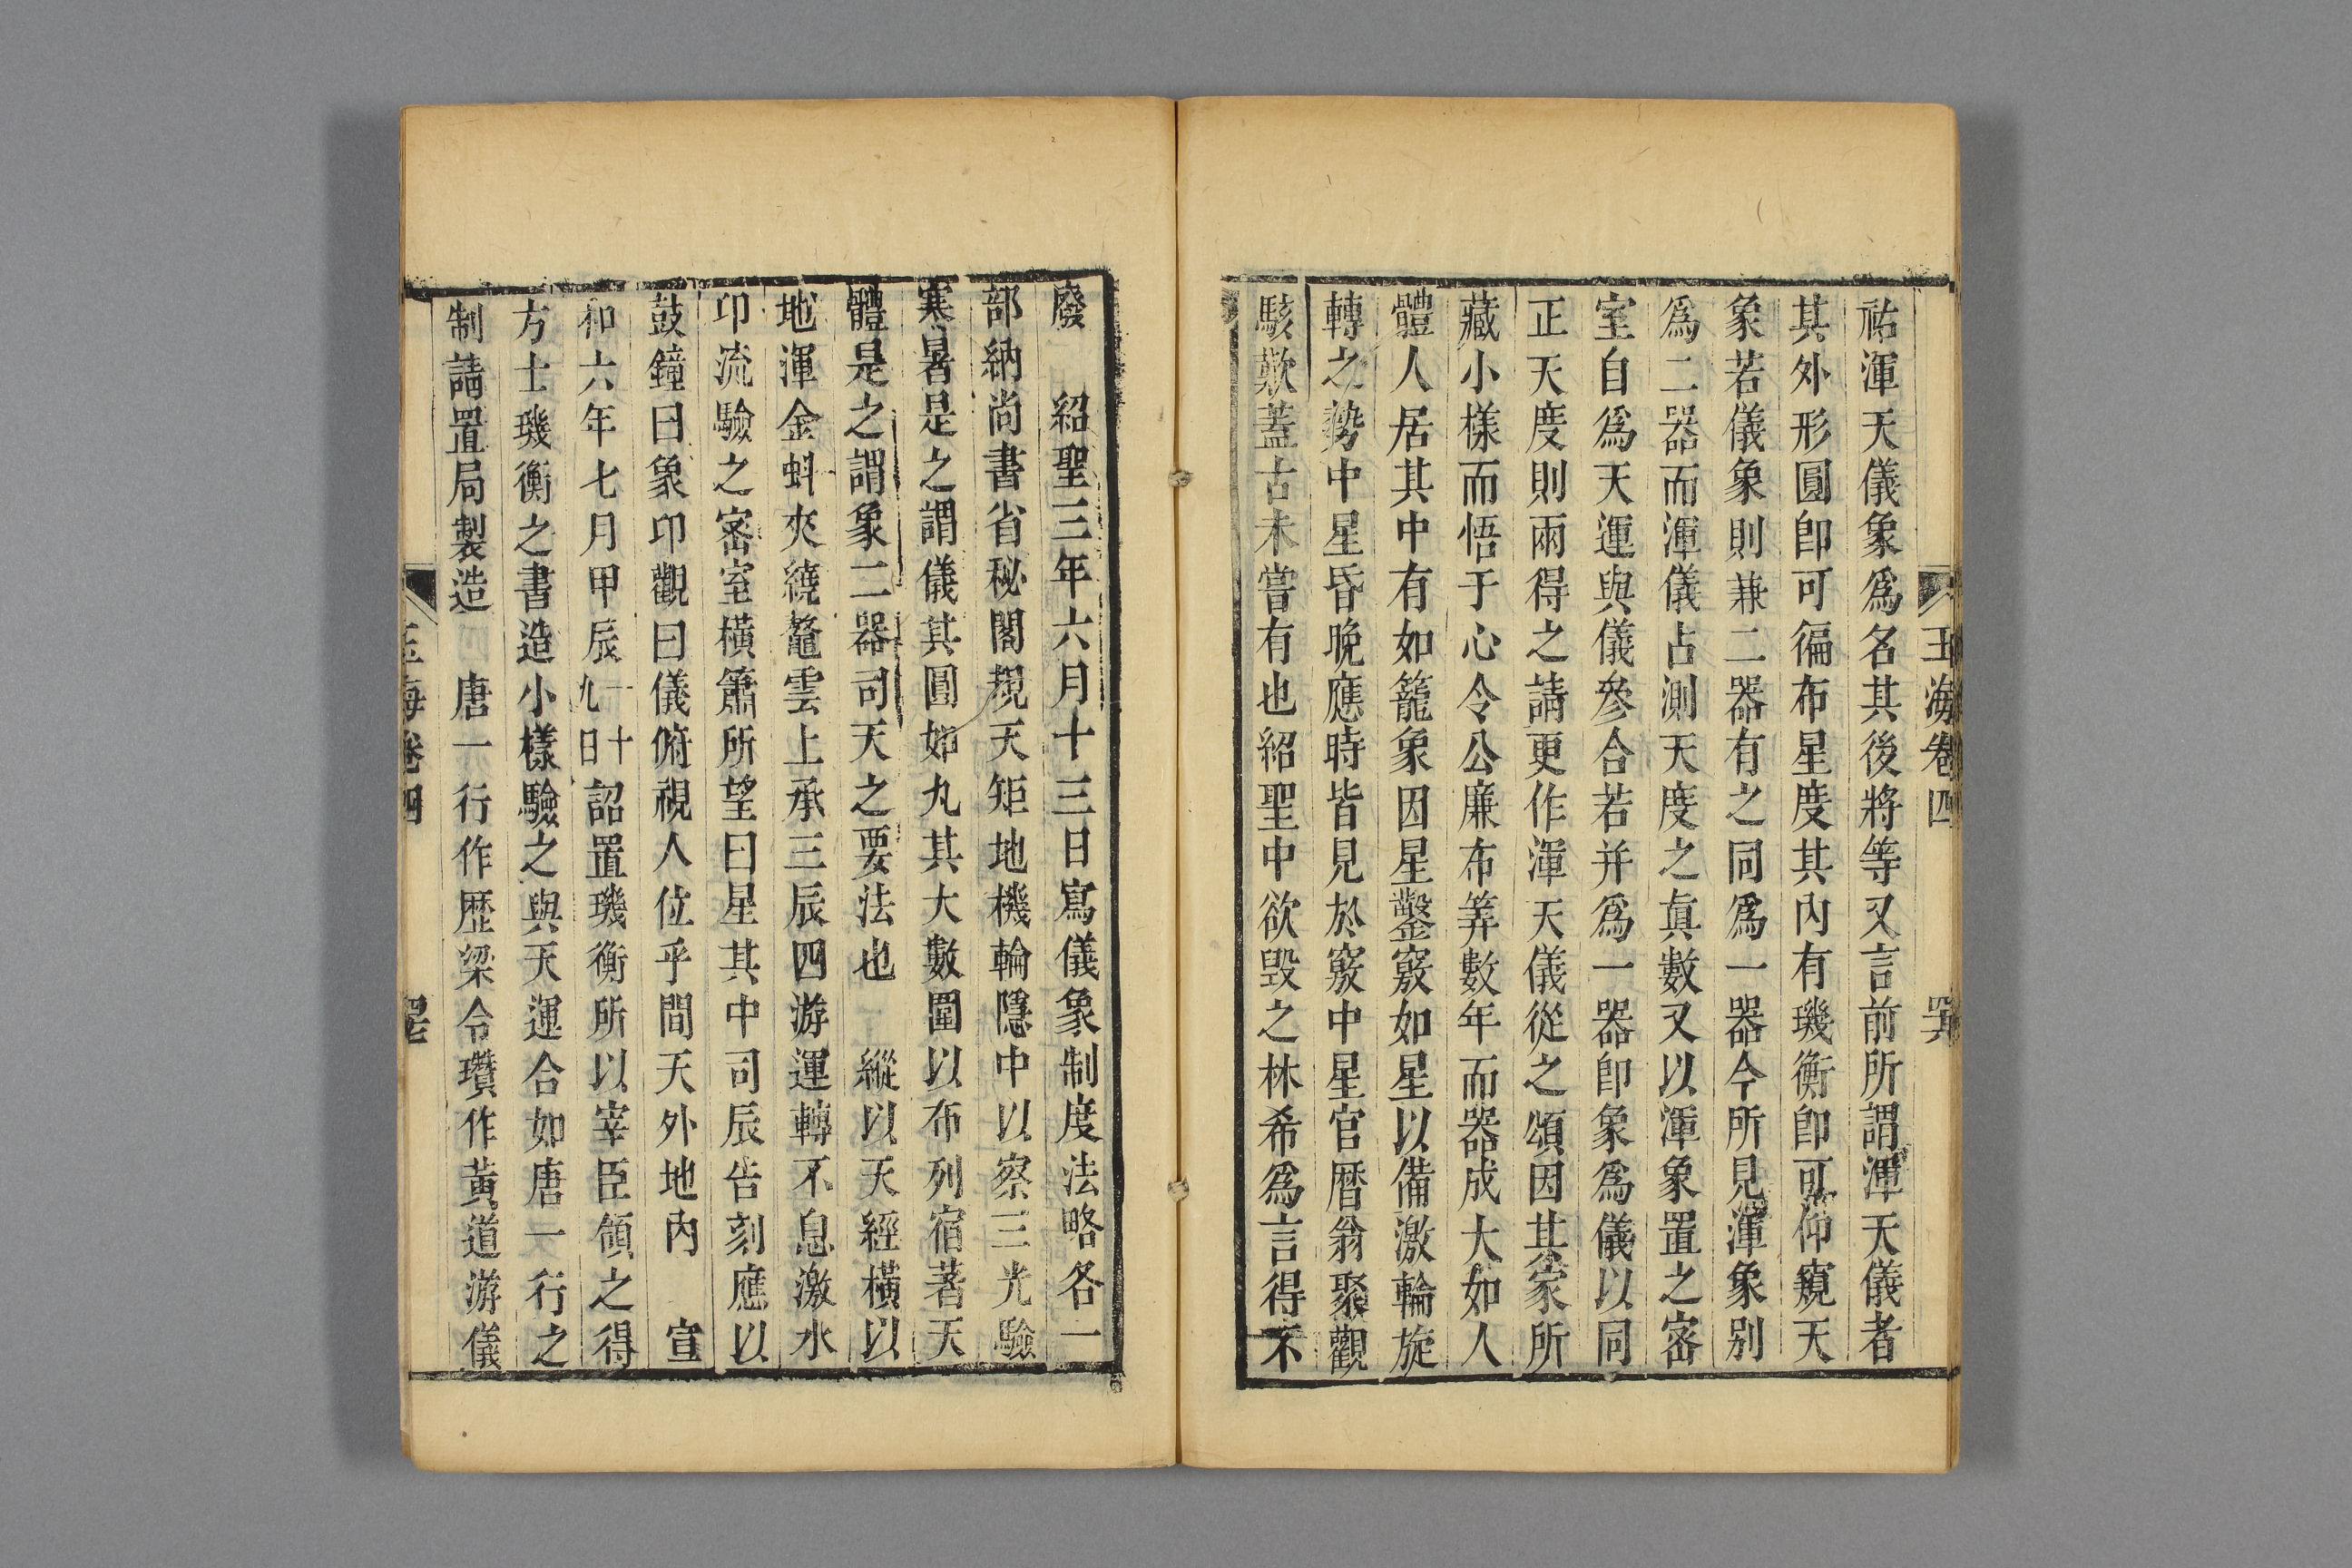 玉海卷四
祐渾天儀象爲名其後將等又言前所謂渾天儀者
其外形圓卽可徧布星度其內有璣衡卽可仰窺天
象若儀象則兼二器有之同爲一器今所見渾象别
爲二器而渾儀占測天度之眞數又以渾象置之密
室自爲天運與儀參合若并爲一器卽象爲儀以同
正天度則兩得之請更作渾天儀從之頌因其家所
藏小樣而悟于心令公廉布筭數年而器成大如人
體人居其中有如籠象因星鑿竅如星以備激輪旋
轉之勢中星昏晚應時皆見於竅中星官曆翁聚觀
駭歎蓋古未嘗有也紹聖中欲毀之林希爲言得不
廢　紹聖三年六月十三日寫儀象制度法略各一
部納尚書省秘閣規天矩地機輪隱中以察三光驗
寒暑是之謂儀其圓如丸其大數圍以布列宿著天
體是之謂象二器司天之要法也　縱以天經橫以
地渾金蚪夾繞鼇雲上承三辰四游運轉不息激水
印流驗之密室橫簫所望曰星其中司辰告刻應以
鼓鐘曰象卬觀曰儀俯視人位乎間天外地內　宣
和六年七月甲辰一十九日詔置璣衡所以宰臣領之得
方士璣衡之書造小樣驗之與天運合如唐一行之
制請置局製造　唐一行作歷梁令瓚作黃道游儀
玉海卷四